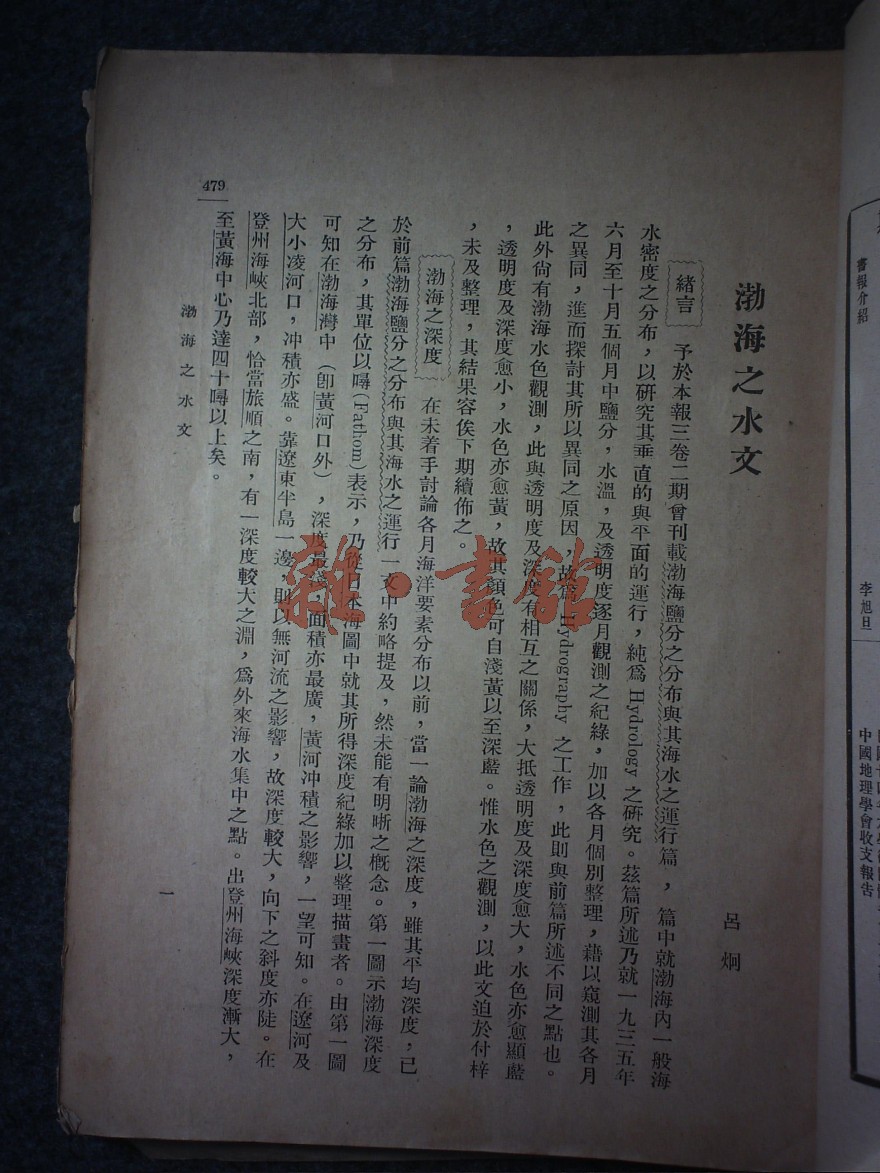 書報介紹
李旭旦
中國地理學會收支報告
渤海之水文
呂炯
緒言 予於本報三卷二期曾刊載渤海鹽分之分布與其海水之運行篇，篇中就渤海內一般海
水密度之分布，以研究其垂直的與平面的運行，純爲 Hydrology 之研究。茲篇所述乃就一九三五年
六月至十月五個月中鹽分，水溫，及透明度逐月觀測之紀錄，加以各月個別整理，藉以窺測其各月
之異同，進而探討其所以異同之原因，故爲 Hydrography 之工作，此則與前篇所述不同之點也。
此外尙有渤海水色觀測，此與透明度及深度有相互之關係，大抵透明度及深度愈大，水色亦愈顯藍
，透明度及深度愈小，水色亦愈黃，故其顏色可自淺黃以至深藍。惟水色之觀測，以此文迫於付梓
，未及整理，其結果容俟下期續佈之。
渤海之深度 在未着手討論各月海洋要素分布以前，當一論渤海之深度，雖其平均深度，已
於前篇渤海鹽分之分布與其海水之運行一文中約略提及，然未能有明晰之概念。第一圖示渤海深度
之分布，其單位以噚(Fathom)表示，乃從日本海圖中就其所得深度紀錄加以整理描畫者。由第一圖
可知在渤海灣中（卽黃河口外），深度最淺，面積亦最廣，黃河冲積之影響，一望可知。在遼河及
大小凌河口，冲積亦盛。靠遼東半島一邊，則以無河流之影響，故深度較大，向下之斜度亦陡。在
登州海峽北部，恰當旅順之南，有一深度較大之淵，爲外來海水集中之點。出登州海峽深度漸大，
至黃海中心乃達四十噚以上矣。
渤海之水文
一
479
雜·書館